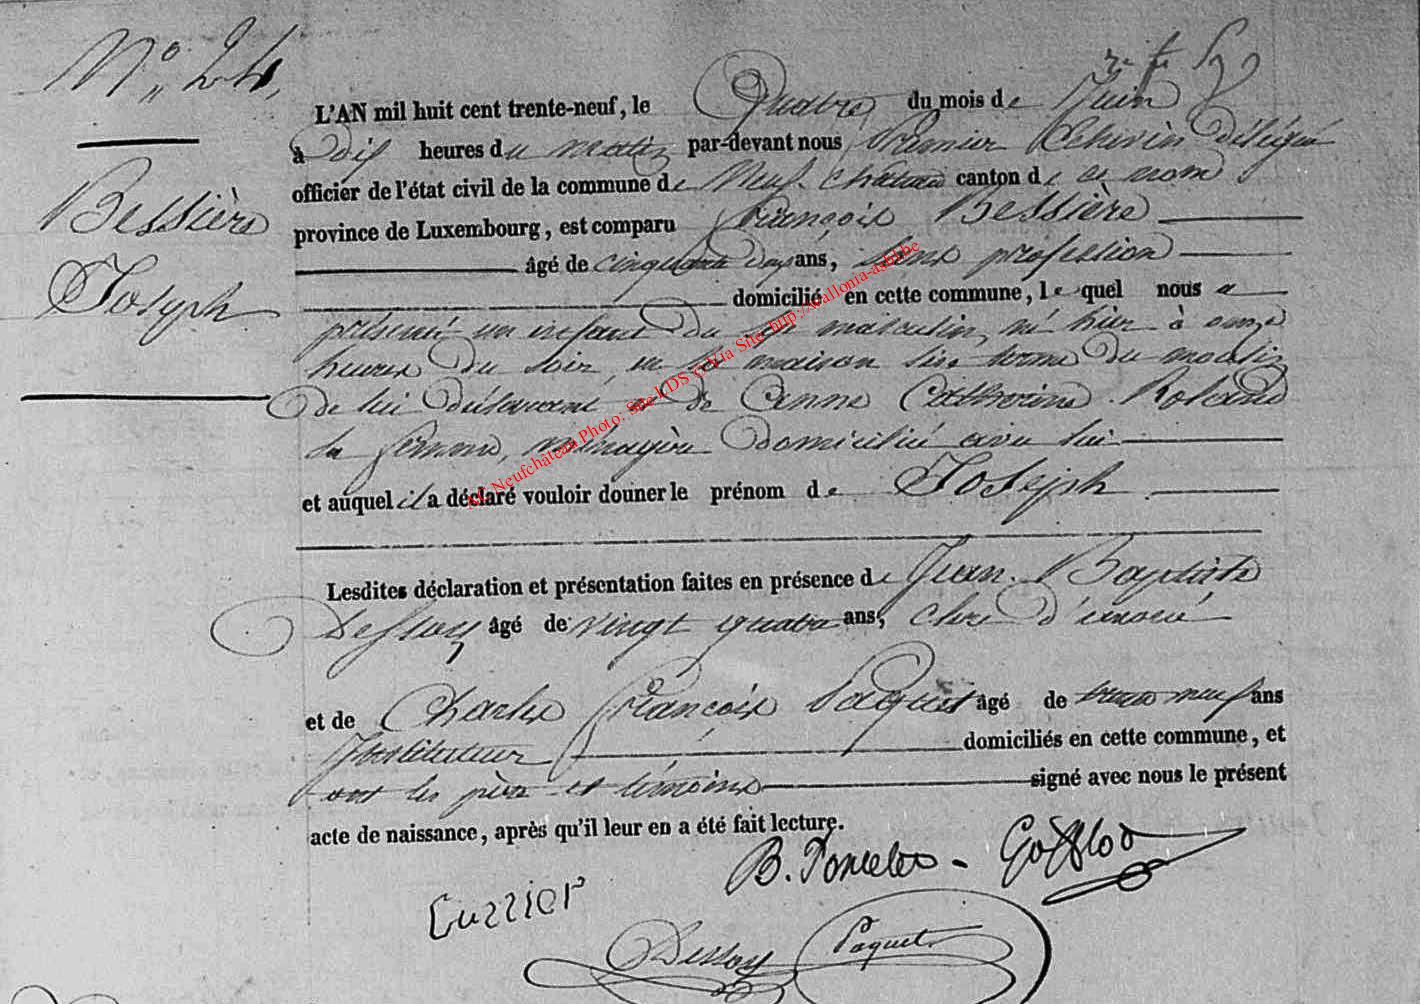 N° 24,
Bessière
Joseph
L'AN mil huit cent trente-neuf, le Quatre du mois de Juin
à dix heures du matin par-devant nous Premier Echevin délégué
officier de l'état civil de la commune de Neuf-Château canton de ce nom
province de Luxembourg, est comparu François Bessière
âgé de cinquante ans, sans profession
domicilié en cette commune, lequel nous a
présenté un enfant du masculin, né hier à onze
heures du soir, en la maison du moulin
de lui déclarant et de Anne Catherine Roland
sa femme, ménagère domiciliée avec lui
et auquel il a déclaré vouloir donner le prénom de Joseph
Lesdites déclaration et présentation faites en présence de Jean-Baptiste
Dessoy âgé de vingt quatre ans, clerc d'avoué
et de Charles François Paquet âgé de trente neuf ans
Instituteur domiciliés en cette commune, et
ont les père et témoins signé avec nous le présent
acte de naissance, après qu'il leur en a été fait lecture.
B. Poncelet -
Dessoy Paquet
AE Neufchâteau Photo: Site LDS Via Site: http://wallonia-asbl.be